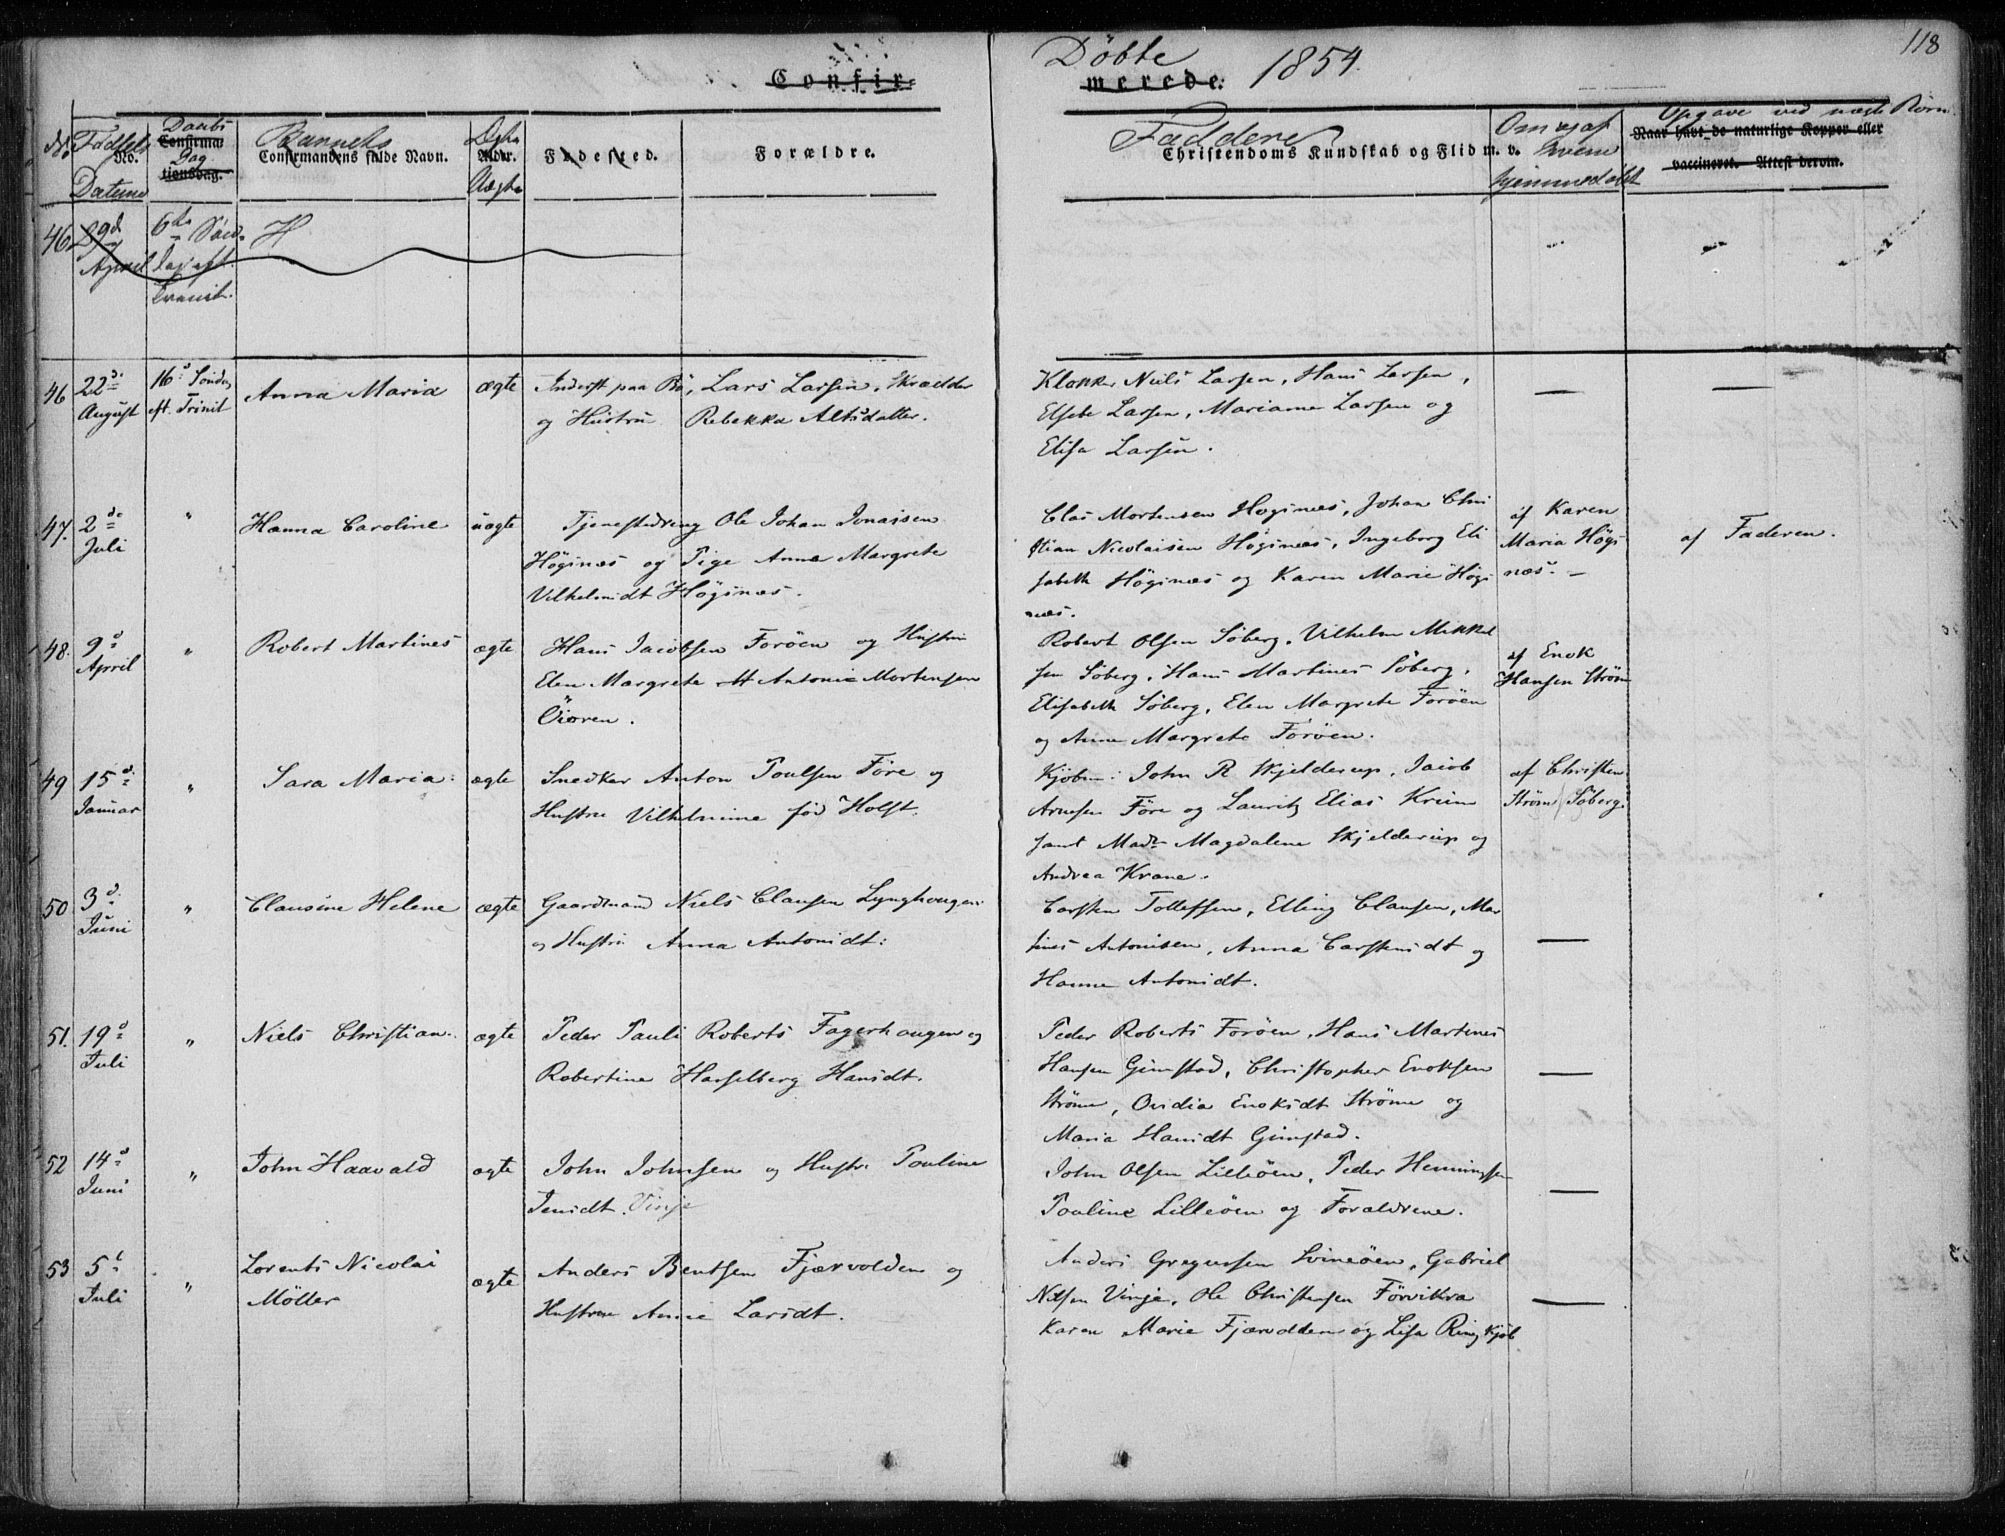 118
Döbte 1854.
Confirmerede.
No. Födsels Datum
Daabs Dag
Confirmationsdag.
Barnets
Confirmandens fulde Navn.
Ægte Uægte
Alder.
Födested.
Forældre.
Faddere
Christendoms Kundskab og Flid m. v.
Om og af hvem hjemmedöbt
Opgave ved uægte Börn
Naar havt de naturlige Kopper eller
vaccineret. Attest derom.
46 29d April 6te Sönd-
dag eft.
Trinit.
H
46 22d August
16d Söndag
eft. Trinit
Anna Maria
ægte
Anderst paa Bö, Lars Larsen, Skrædder
og Hustru Rebekka Altsdatter.
Klokker Niels Larsen, Hans Larsen,
Elsebe Larsen, Marianne Larsen og
Elisa Larsen.
—
—
47. 2de Juli
"
Hanna Caroline
uægte
Tjenestedreng Ole Johan Jonassen
Höginæs og Pige Anne Margrete
Vilhelmsdt Höginæs.
Clas Mortensen Höginæs, Johan Chri
stian Nicolaisen Höginæs, Ingeborg Eli
sabeth Höginæs og Karen Marie Högi
næs.
af Karen
Maria Högi
næs. —
af Faderen.
48. 9d April
"
Robert Martines
ægte
Hans Jacobsen Foröen og Hustru
Elen Margrete Antonie Mortensen
Öioren.
Robert Olsen Söberg, Vilhelm Mikkel
sen Söberg, Hans Martines Söberg,
Elisabeth Söberg, Elen Margrete Foröen
og Anne Margrete Foröen.
af Enok
Hansen Ström
49 15d Januar
"
Sara Maria.
ægte
Snedker Anton Poulsen Före og
Hustru Vilhelmine föd Holst.
Kjöbm: John R Skjelderup, Jacob
Arnesen Före og Lauritz Elias Krün
samt Madm Magdalena Skjelderup og
Andrea Krane.
af Christen
Ström / Söberg.
50 3d Juni
"
Clausine Helene
ægte
Gaardmand Niels Clausen Lynghougen
og Hustru Anna Antonidt:
Carsten Tollefsen, Elling Clausen, Mar
tines Antonisen, Anna Carstensdt og
Hanna Antonidt.
—
51. 19d Juli
"
Niels Christian.
ægte
Peder Pauli Roberts Fagerhougen og
Robertina Hasselberg Hansdt.
Peder Roberts Foröen, Hans Martines
Hansen Gimstad, Christopher Enoksen
Ströme, Ovidia Enoksdt Ströme og
Maria Hansdt Gimstad.
—
52 14d Juni
"
John Haavald
ægte
John Johnsen og Hustr. Pouline
Jensdt. Vinje
John Olsen Lilleöen, Peder Henningsen
Pouline Lilleöen og Forældrene.
—
53 5t Juli
"
Lorents Nicolai
Möller
ægte
Anders Bentsen Fjærvolden og
Hustrue Anne Larsdt.
Anders Gregersen Svineöen, Gabriel
Nilsen Vinje, Ole Christensen Förvikra
Karen Marie Fjærvolden og Lisa Ring Kjöb
—